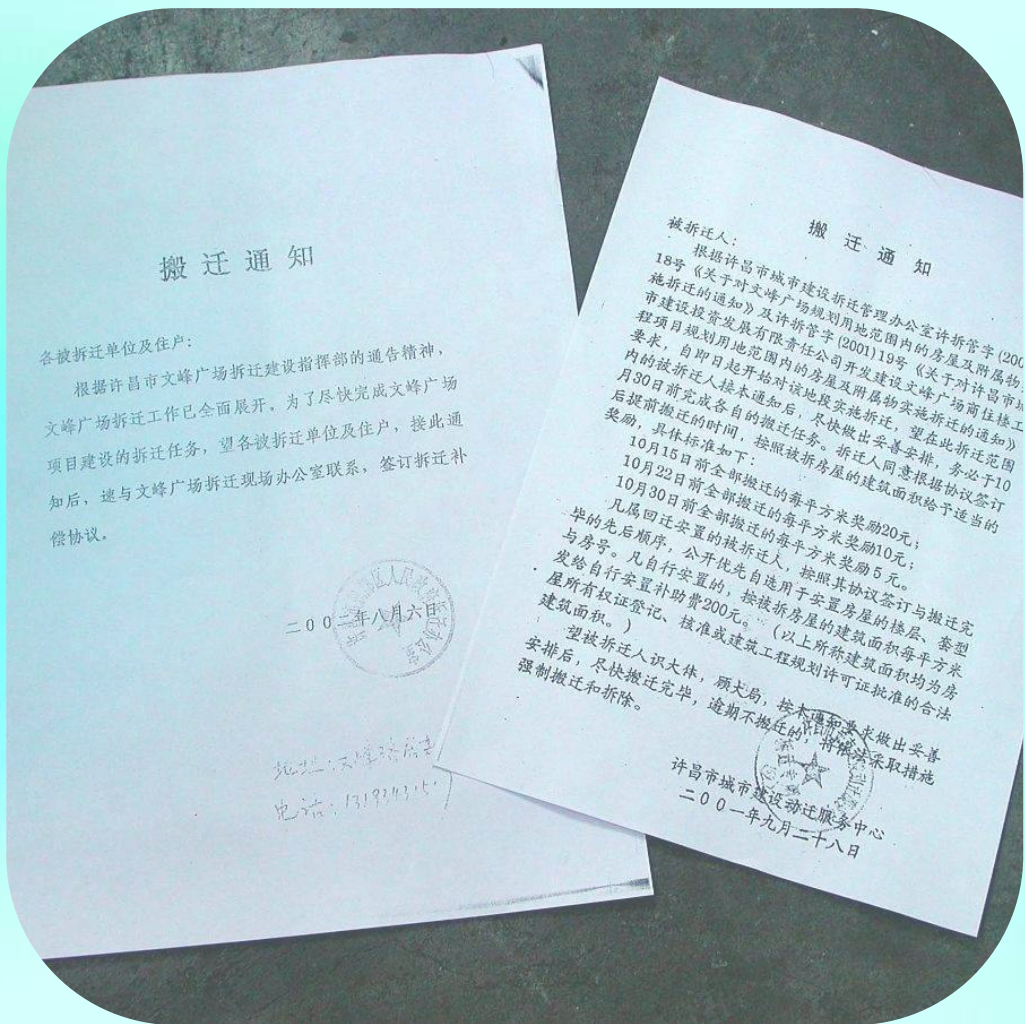 搬迁通知
各被拆迁单位及住户：
根据许昌市文峰广场拆迁建设指挥部的通告精神，
文峰广场拆迁工作已全面展开。为了尽快完成文峰广场
项目建设的拆迁任务，望各被拆迁单位及住户，接此通
知后，速与文峰广场拆迁现场办公室联系，签订拆迁补
偿协议。
二００二年八月六日
地址：文峰路
电话：
搬迁通知
被拆迁人：
根据许昌市城市建设拆迁管理办公室许拆管字(200
18号《关于对文峰广场规划用地范围内的房屋及附属物
施拆迁的通知》及许拆管字(2001)19号《关于对许昌市
市建设投资发展有限责任公司开发建设文峰广场商住楼工
程项目规划用地范围内的房屋及附属物实施拆迁的通知》
要求，自即日起开始对该地段实施拆迁，望在此拆迁范围
内的被拆迁人接本通知后，尽快做出妥善安排，务必于10
月30日前完成各自的搬迁任务。拆迁人同意根据协议签订
后提前搬迁的时间，按照被拆房屋的建筑面积给予适当的
奖励，具体标准如下：
10月15日前全部搬迁的每平方米奖励20元；
10月22日前全部搬迁的每平方米奖励10元；
10月30日前全部搬迁的每平方米奖励5元。
凡属回迁安置的被拆迁人，按照其协议签订与搬迁完
毕的先后顺序，公开优先自选用于安置房屋的楼层、套型
与房号。凡自行安置的，按被拆房屋的建筑面积每平方米
发给自行安置补助费200元。（以上所称建筑面积均为房
屋所有权证登记、核准或建筑工程规划许可证批准的合法
建筑面积。）
望被拆迁人识大体，顾大局，按本通知要求做出妥善
安排后，尽快搬迁完毕，逾期不搬迁的，将依法采取措施
强制搬迁和拆除。
许昌市城市建设动迁服务中心
二００一年九月二十八日